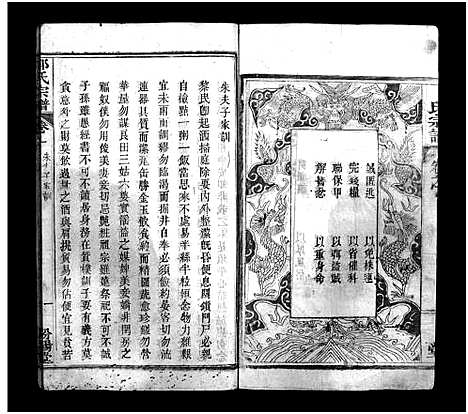 氏宗譜
誡匿逃
以免株連
完錢糧
以省催科
聯保甲
以弭盜賊
解讐忿
以重身命
朱夫子家訓
黎民即起洒掃庭除要內外整潔既昏便息關鎖門戶必親
自檢點一粥一飯當思來處不易半絲半粒恒念物力維艱
宜未雨而綢繆勿臨渴而掘井自奉必須儉約宴客切勿流
連器具質而潔瓦缶勝金玉飲食約而精園蔬愈珍饈勿營
華屋勿謀良田三姑六婆實淫盜之媒婢美妾嬌非閨房之
福奴僕勿用俊美妻妾切忌艷粧祖宗雖遠祭祀不可不誠
子孫雖愚經書不可不讀居身務在質樸訓子要有義方莫
貪意外之財莫飲過量之酒與肩挑貿易勿佔便宜見貧苦
氏宗譜
卷
朱夫子家訓
一
汾陽堂